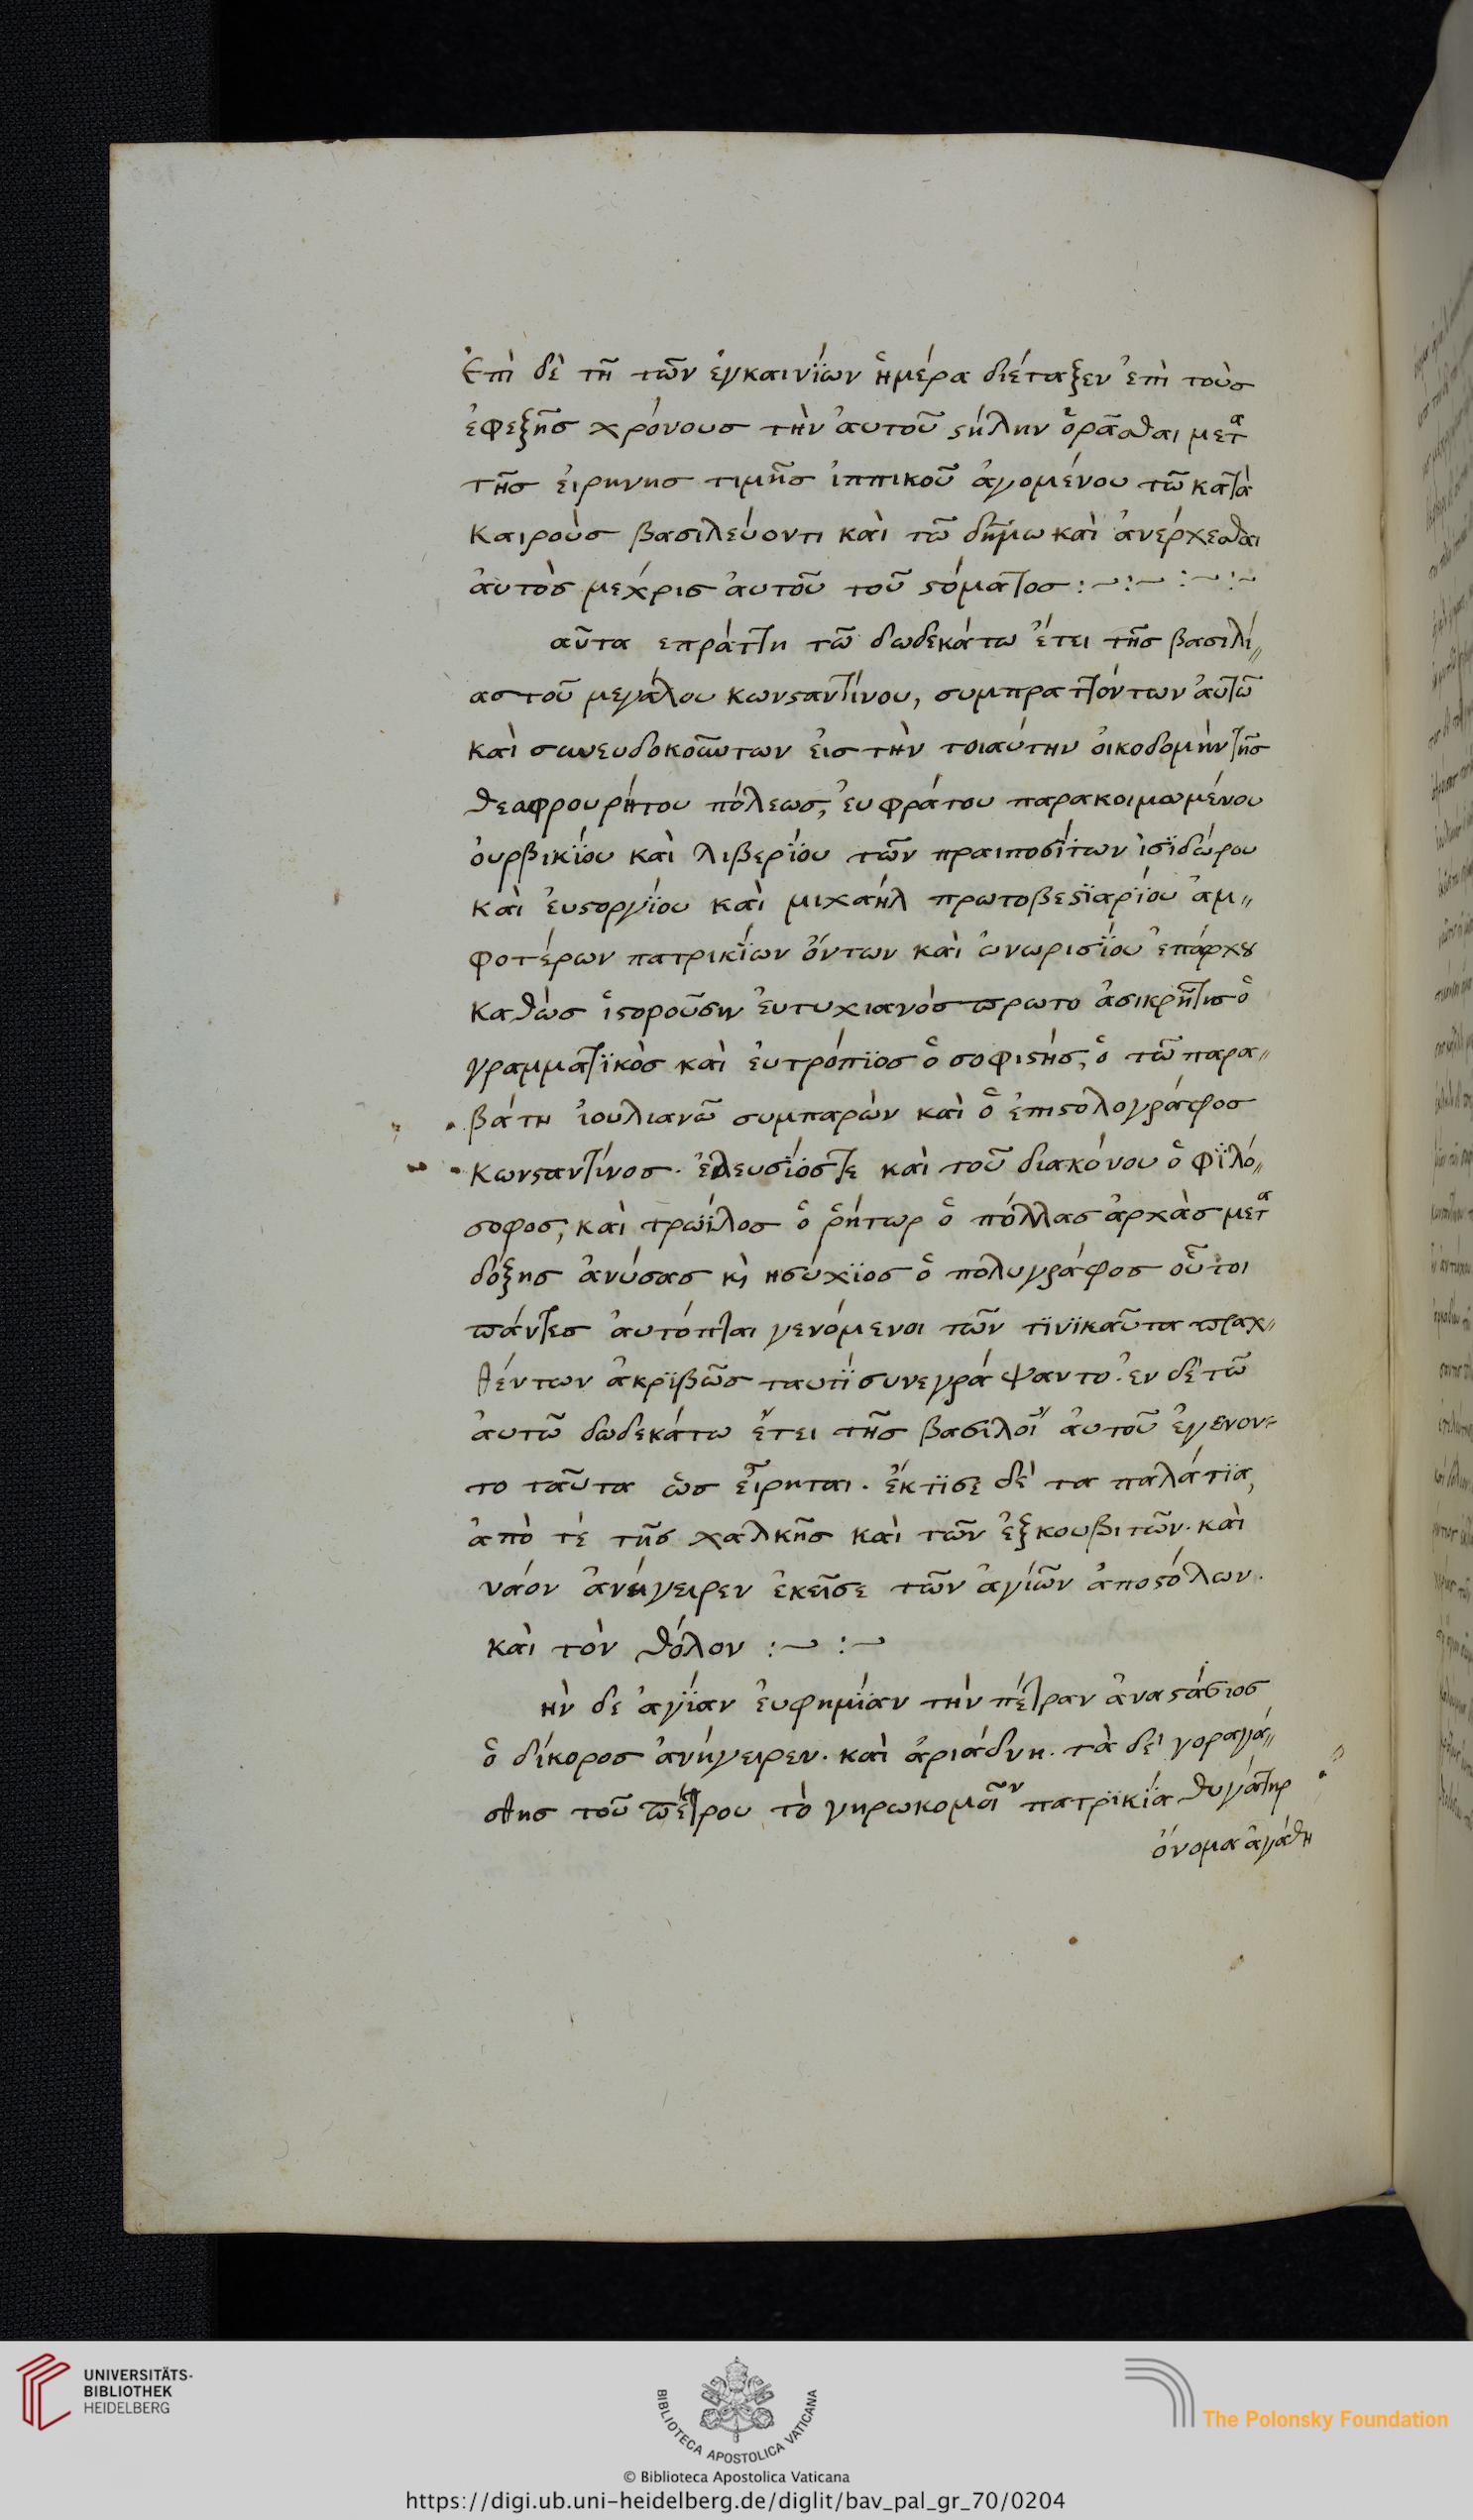 Ἐπὶ δὲ τῆ τῶν ἐγκαινΐων ἡμέρα διέταξεν ἐπὶ τοὺσ
ἐφεξῆσ χρόνουσ τὴν ἀυτοῦ ϛήλην ὁρᾶσθαι μετα
τῆσ ἐιρηνησ τιμῆσ ἱππικοῦ ἀγομένου τῶ κατὰ
καιροὺσ βασιλεύοντι καὶ τῶ δήμω καὶ ἀνέρχεσθαι
ἀυτὸσ μεχρισ ἀυτοῦ τοῦ ϛόματοσ :~:~ :~:~
αῦτα επράττη τῶ δωδεκάτω ἔτει τῆσ βασιλί〃
ασ τοῦ μεγάλου κωνϛαντίνου, συμπραττόντων ἀυτῶ
καὶ συνευδοκούντων ἐισ τὴν τοιαύτην ὀικοδομὴν τῆσ
θεοφρουρήτου πόλεωσ, ἐυφράτου παρακοιμωμένου
ὀυρβικΐου καὶ λιβερΐου τῶν πραιποσΐτων ἰσϊδώρου
καὶ ἐυϛοργΐου καὶ μιχαήλ πρωτοβεϛϊαρΐου ἀμ〃
φοτέρων πατρικΐων ὄντων καὶ ὠνωρισΐου ἐπάρχου
καθὼσ ἱϛοροῦσιν ἐυτυχιανόσ πρωτο ἀσικρῆτησ ὁ
γραμματϊκὸσ καὶ ἐυτρόπϊοσ ὁ σοφιϛήσ, ὁ τῶ παρα〃
βάτη ἰουλιανῶ συμπαρὼν καὶ ὁ ἐπιϛολογράφοσ
κωνϛαντίνοσ. ἐλευσΐόστε καὶ τοῦ διακόνου ὁ φϊλό〃
σοφοσ, καὶ τρωΐλοσ ὁ ῥήτωρ ὁ πόλλασ ἀρχὰσ μετα
δόξησ ἀνύσασ κὶ ησύχϊοσ ὁ πολυγράφοσ οὗτοι
πάντεσ ἀυτόπται γενόμενοι τῶν τϊνϊκαῦτα πραχ〃
θέντων ἀκρϊβῶσ ταυτΐ συνεγράψαντο. ἐν δὲ τῶ
ἀυτῶ δωδεκάτω ἔτει τῆσ βασιλοῦν ἀυτοῦ ἐγενον〃
το ταῦτα ὡσ εἴρηται. ἔκτϊσε δὲ τα παλάτϊα,
ἀπὸ τέ τῆσ χαλκῆσ καὶ τῶν ἐξκουβιτῶν. καὶ
ναόν ἀνήγειρεν ἐκεῖσε τῶν ἀγίῶν ἀποϛόλων.
καὶ τὸν θόλον :~ :~
ην δε ἀγΐαν ἐυφημΐαν τὴν πέτραν ἀναϛάσιοσ
ὁ δίκοροσ ἀνήγειρεν. καὶ ἀριάδνη. τὰ δεὶ γοραγά〃
σθησ τοῦ πέτρου τὸ γηρωκομοῖν πατρϊκΐα θυγάτηρ
ὀνομα ἀγάθη
UNIVERSITÄTS-
BIBLIOTHEK
HEIDELBERG
BIBLIOTECA APOSTOLICA VATICANA
The Polonsky Foundation
© Biblioteca Apostolica Vaticana
https://digi.ub.uni-heidelberg.de/diglit/bav_pal_gr_70/0204